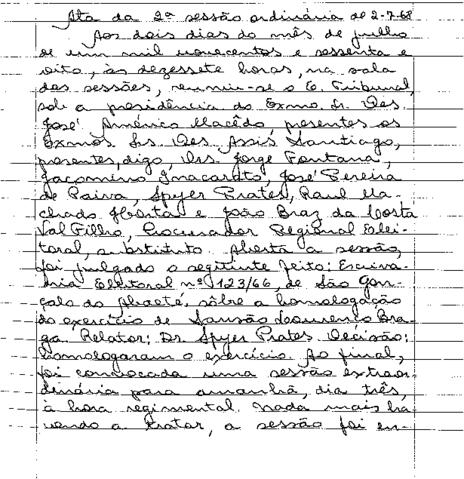 Ata da 2ª sessão ordinária de 2-7-68
Aos dois dias do mês de julho
de um mil novecentos e sessenta e
oito, às dezessete horas, na sala
das sessões, reuniu-se o E. Tribunal,
sob a presidência do Exmo. Sr. Des.
José Américo Macêdo, presentes os
Exmos Srs. Des. Assis Santiago,
presentes, digo, Drs. Jorge Fontana,
Jacomino Inacarato, José Pereira
de Paiva, Spyer Prates, Raul Ma-
chado Horta e João Braz da Costa
Val Filho, Procurador Regional Elei-
toral, substituto. Aberta a sessão,
foi julgado o seguinte feito: Escriva-
nia Eleitoral nº 123/66, de São Gon-
çalo do Abaeté, sôbre a homologação
do exercício de Sansão Lourenço Bra-
ga. Relator: Dr. Spyer Prates. Decisão:
homologaram o exercício. Ao final,
foi convocada uma sessão extraor-
dinária para amanhã, dia três,
à hora regimental. Nada mais ha-
vendo a tratar, a sessão foi en-